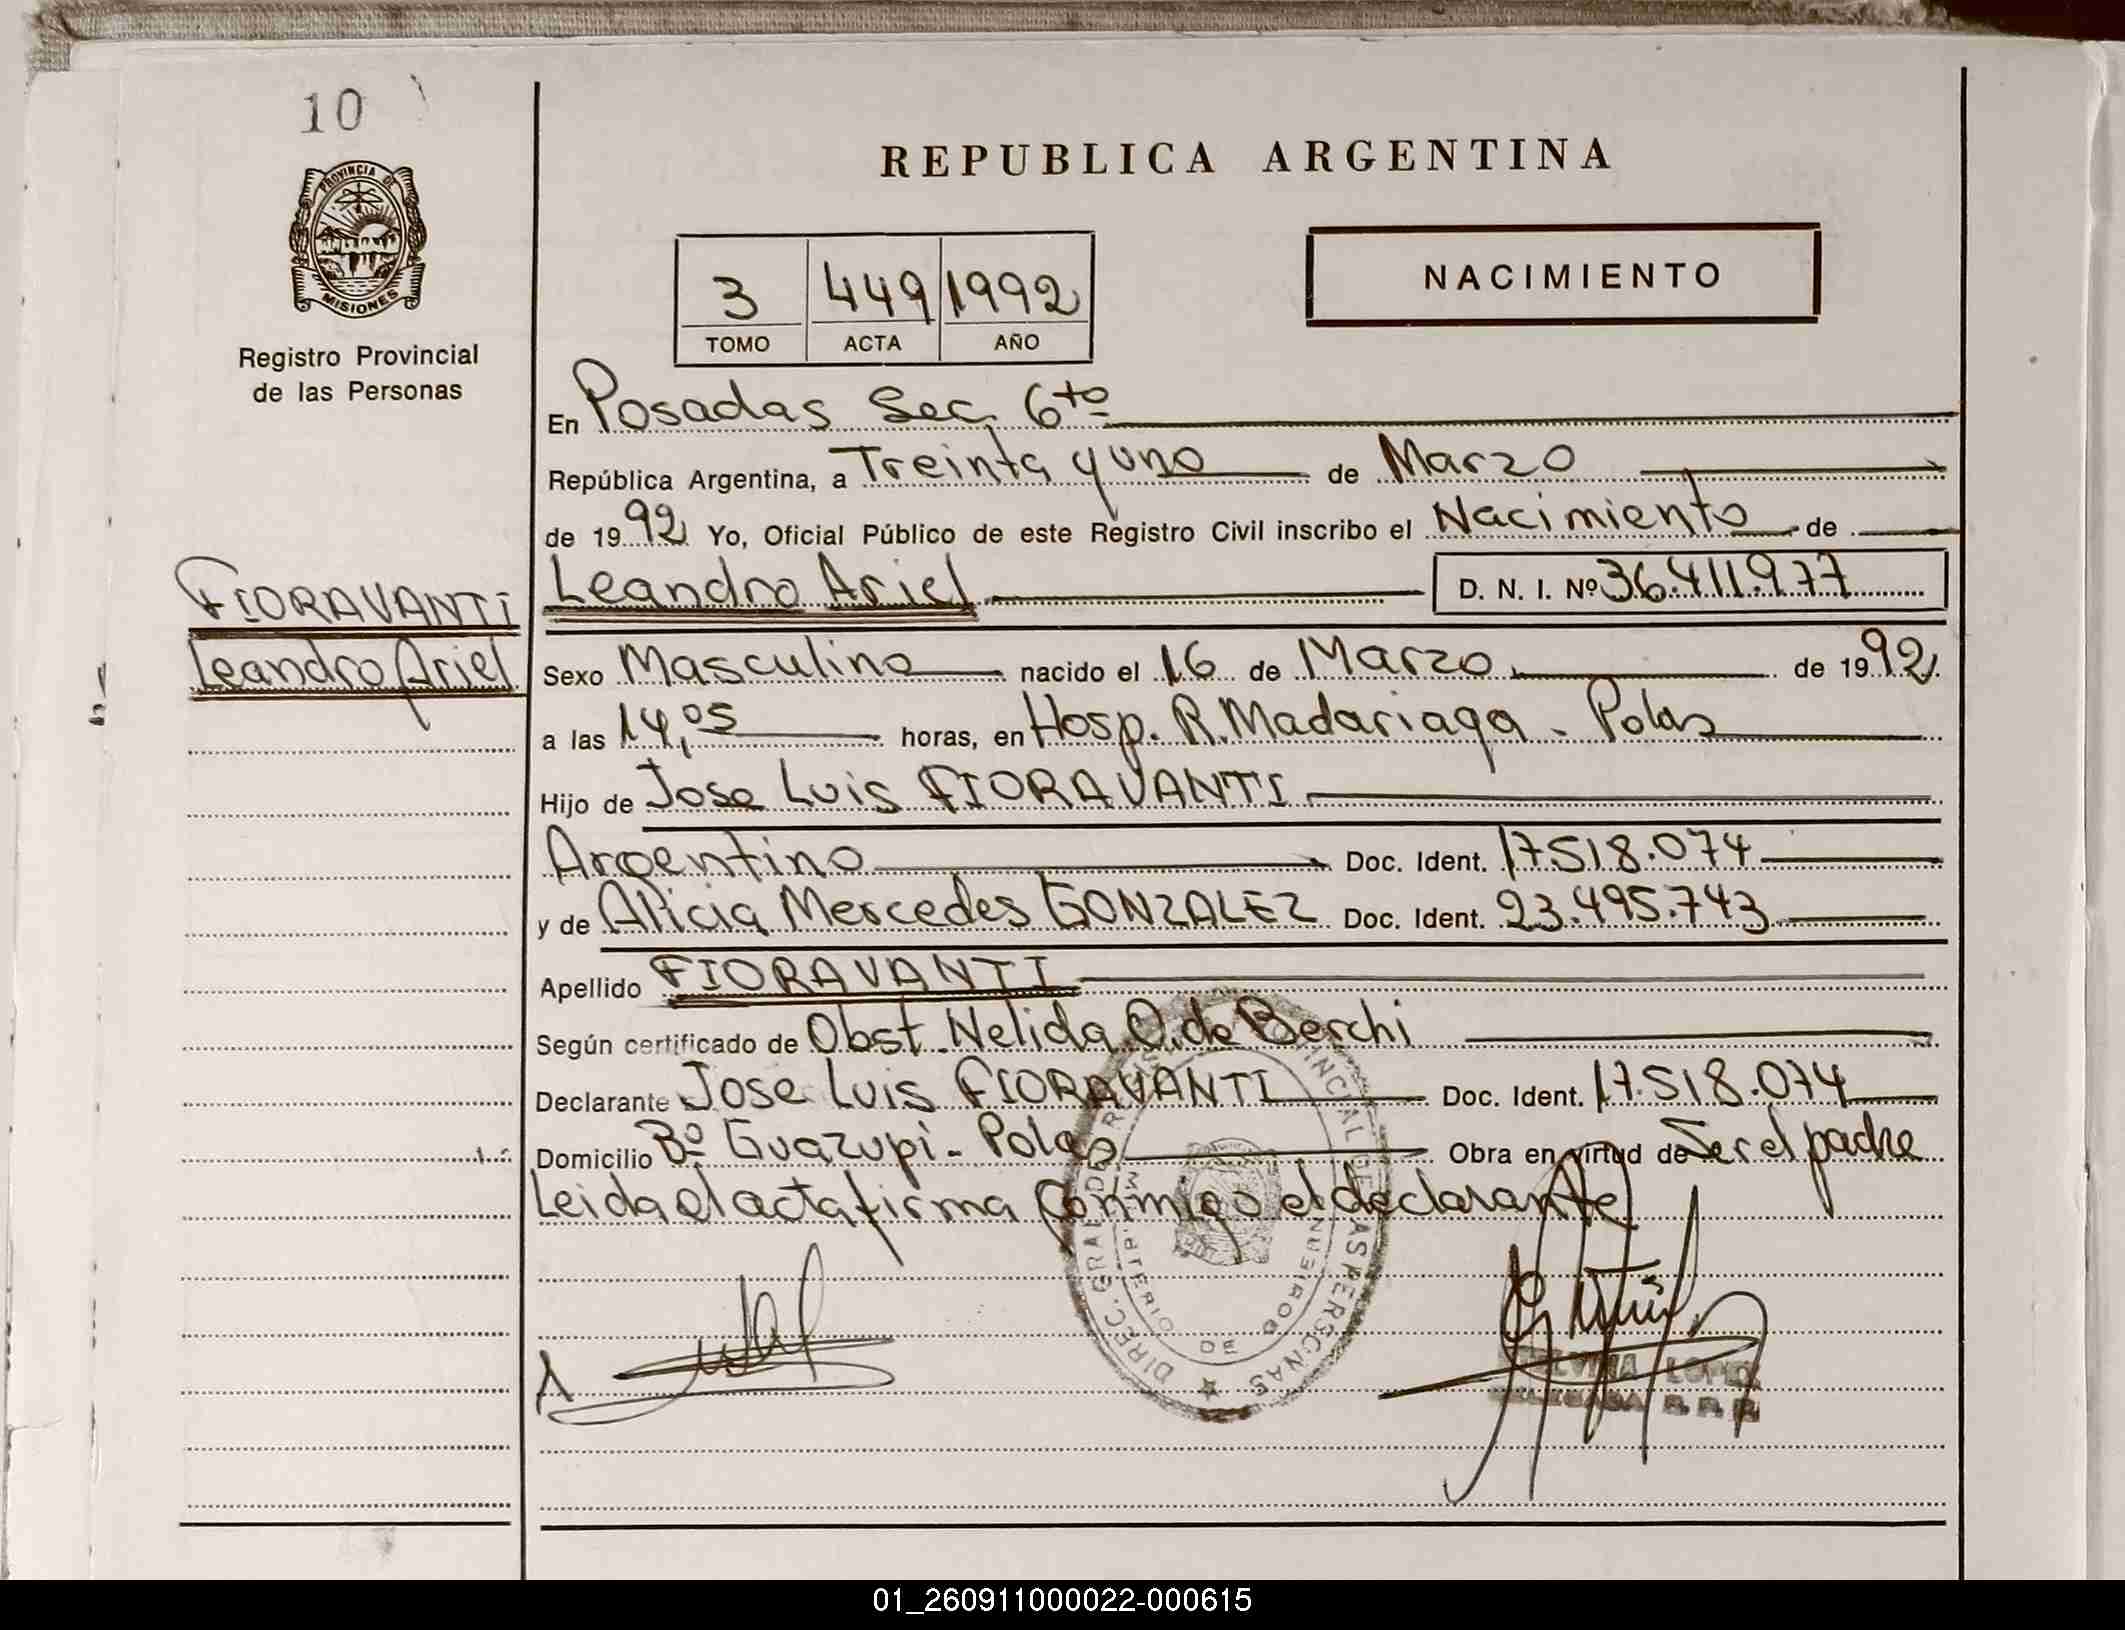 10
PROVINCIA DE
MISIONES
Registro Provincial
de las Personas
REPUBLICA ARGENTINA
3 449 1992
TOMO ACTA AÑO
NACIMIENTO
En Posadas Sec. 6ta
República Argentina, a Treinta y uno de Marzo
de 1992 Yo, Oficial Público de este Registro Civil inscribo el Nacimiento de
FIORAVANTI
Leandro Ariel
Leandro Ariel D. N. I. Nº 36.411.977
Sexo Masculino nacido el 16 de Marzo de 1992.
a las 14,05 horas, en Hosp. R. Madariaga - Pdas
Hijo de Jose Luis FIORAVANTI
Argentino Doc. Ident. 17.518.074
y de Alicia Mercedes GONZALEZ Doc. Ident. 23.495.743
Apellido FIORAVANTI
Según certificado de Obst. Nelida O. de Berchi
Declarante Jose Luis FIORAVANTI Doc. Ident. 17.518.074
Domicilio Bº Guazupi - Pdas Obra en virtud de Ser el padre
Leida el acta firma conmigo el declarante
DIREC. GRAL. DE PROVINCIAL DE LAS PERSONAS
MINISTERIO DE GOBIERNO
LOPEZ
DELEGADA R. P. P.
01_260911000022-000615